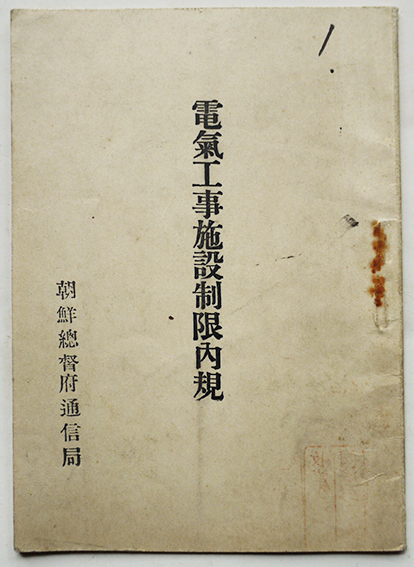 電氣工事施設制限內規
朝鮮總督府通信局